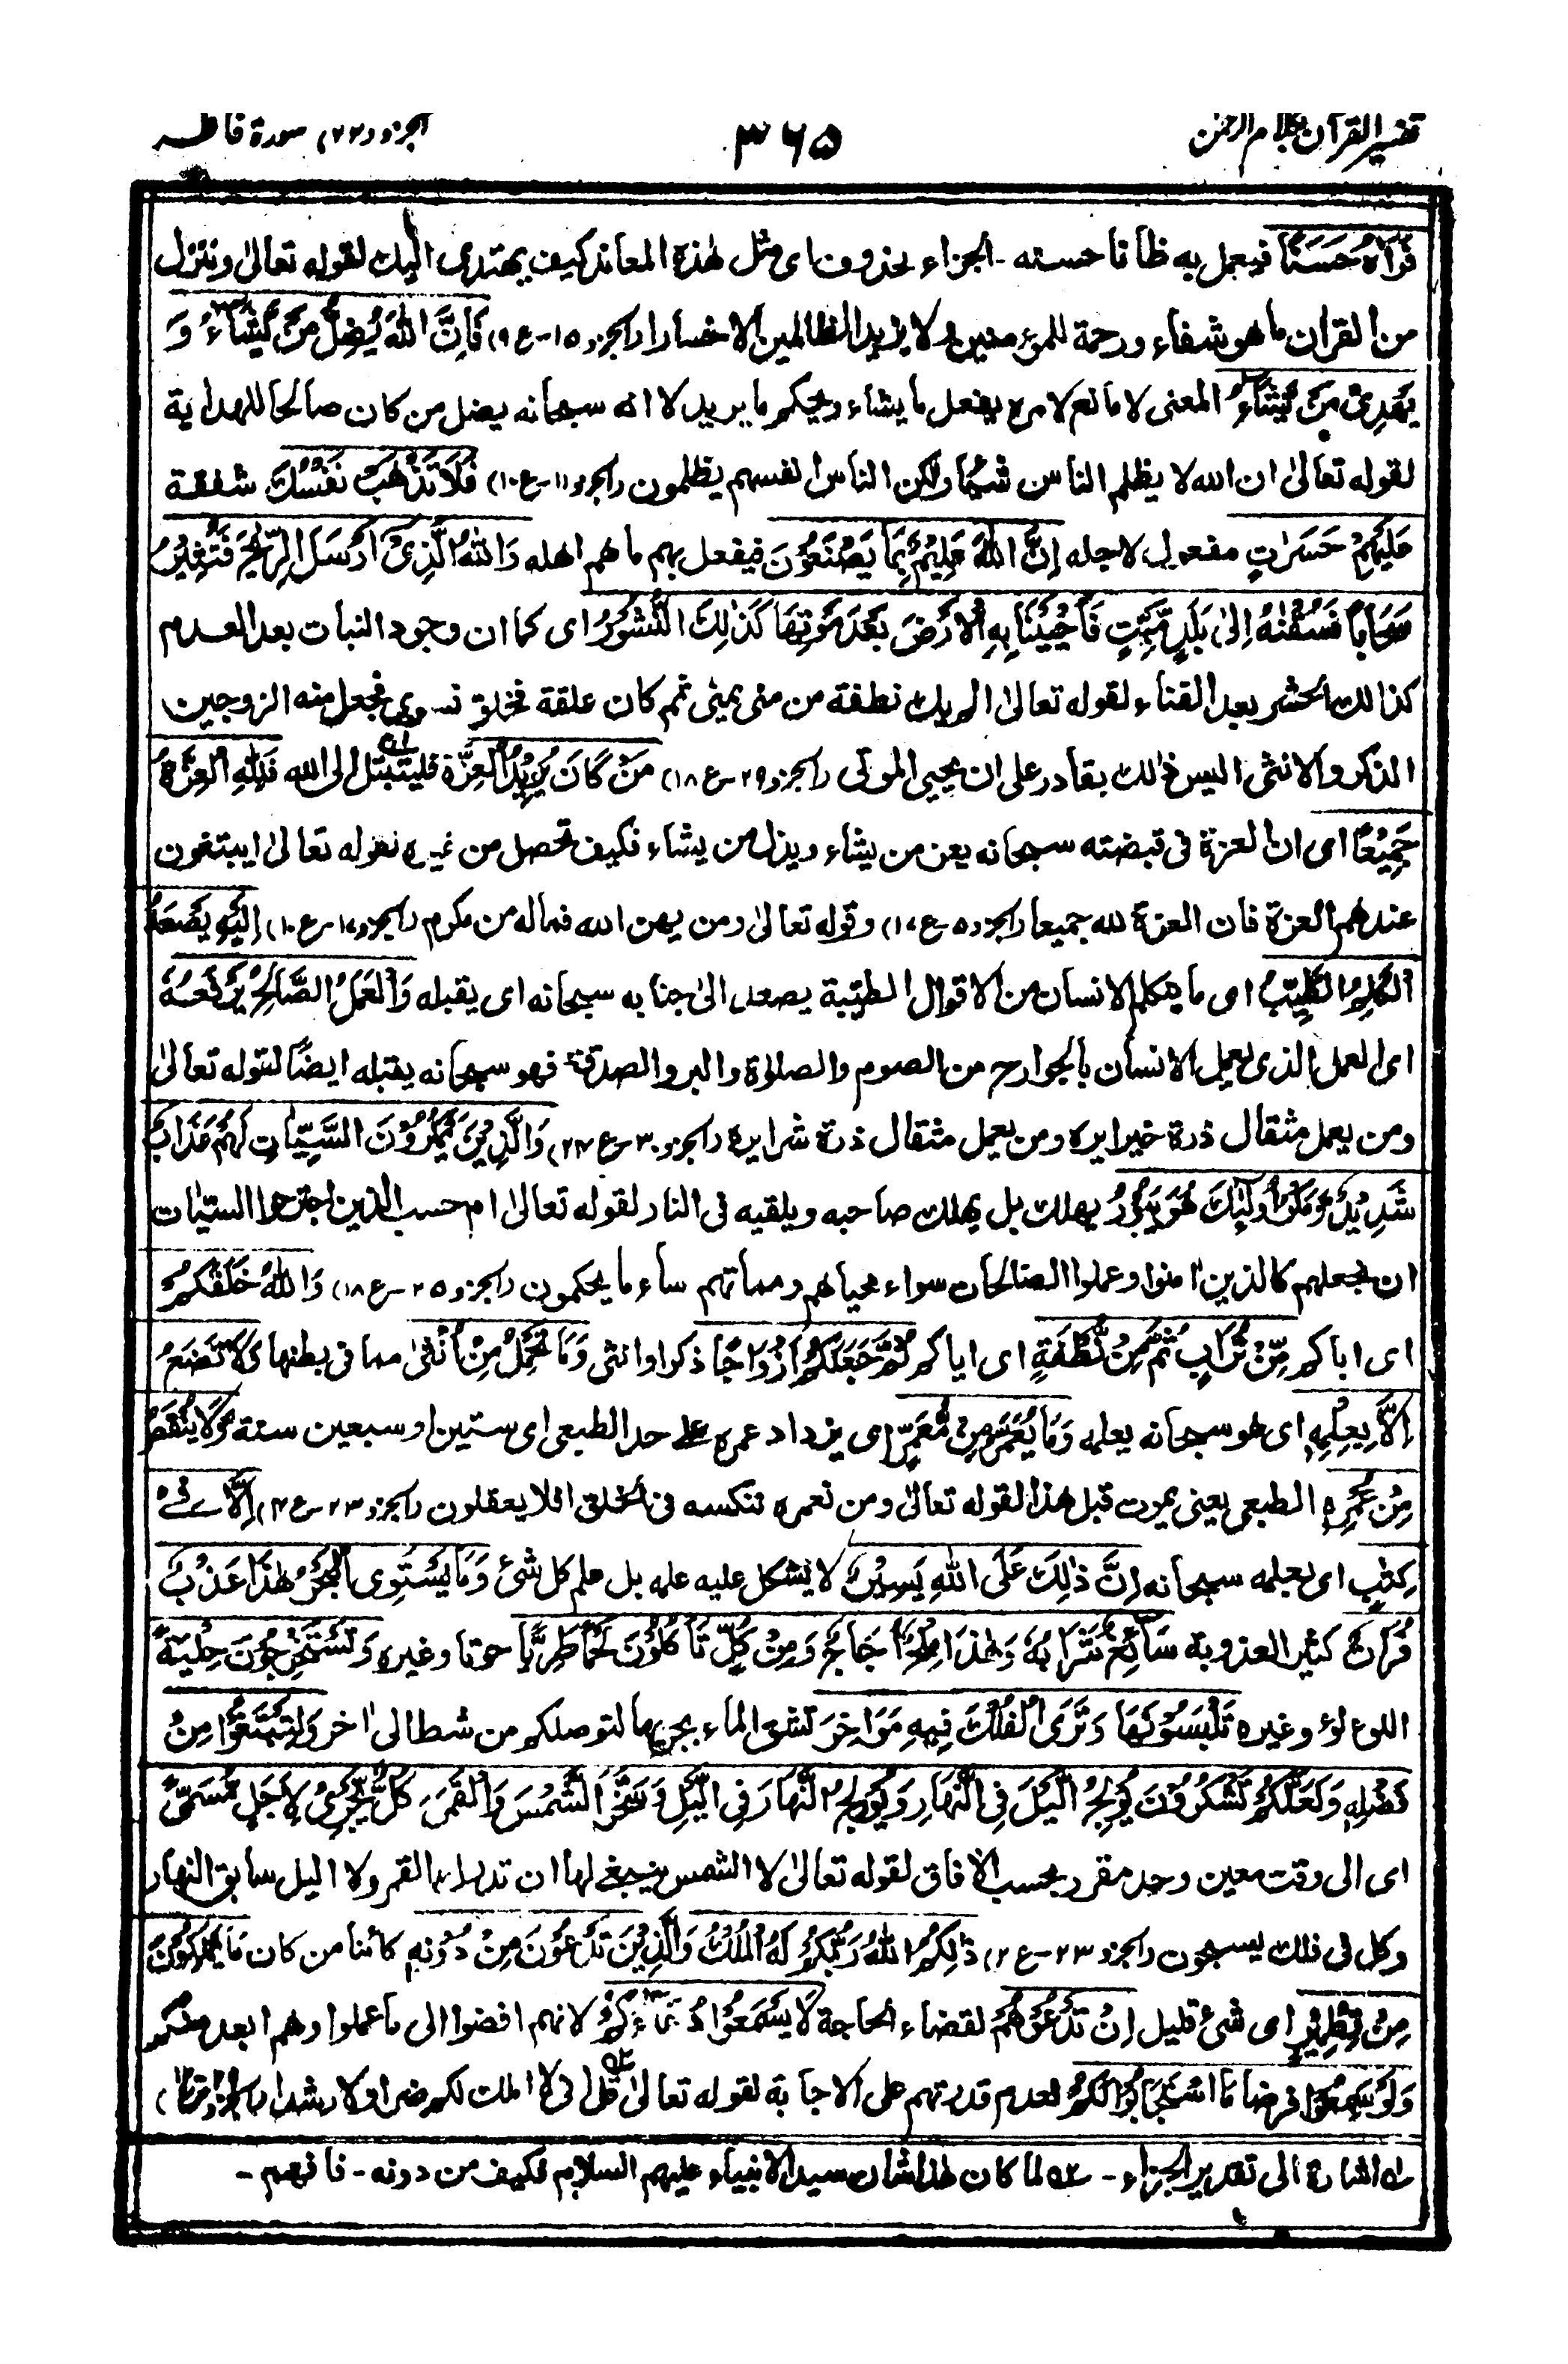 تفسير القرآن بكلام الرحمن ٣٦٥ الجزو (٢٢) سورة فاطر
فَرَاٰهُ حَسَنًا فيعمل به ظانا حسنه - الجزاء محذوف اى مثل هٰذه المعاند كيف يهتدى اليك لقوله تعالىٰ وننزل
من القرآن ما هو شفاء ورحمة للمؤمنين ولا يزيد الظالمين الا خسارا (الجزو ١٥ - ع ٩) فَاِنَّ اللهَ يُضِلُّ مَنْ يَّشَآءُ وَ
يَهْدِىْ مَنْ يَّشَآءُ المعنى لا مانع لامره يفعل ما يشاء ويحكم ما يريد لا انه سبحانه يضل من كان صالحا للهداية
لقوله تعالىٰ ان الله لا يظلم الناس شيئا ولكن الناس انفسهم يظلمون (الجزو ١١ - ع ١٠) فَلَا تَذْهَبْ نَفْسُكَ شفقة
عَلَيْهِمْ حَسَرٰتٍ مفعول لاجله اِنَّ اللهَ عَلِيْمٌۢ بِمَا يَصْنَعُوْنَ فيفعل بهم ما هم اهله وَاللهُ الَّذِىْٓ اَرْسَلَ الرِّيٰحَ فَتُثِيْرُ
سَحَابًا فَسُقْنٰهُ اِلىٰ بَلَدٍ مَّيِّتٍ فَاَحْيَيْنَا بِهِ الْاَرْضَ بَعْدَ مَوْتِهَا كَذٰلِكَ النُّشُوْرُ اى كما ان وجود النبات بعد العدم
كذالك الحشر بعد الفناء لقوله تعالىٰ الم يك نطفة من منى يمنىٰ ثم كان علقة فخلق فسوى فجعل منه الزوجين
الذكر والانثى اليس ذالك بقادر على ان يحيى الموتى (الجزو ٢٩ - ع ١٨) مَنْ كَانَ يُرِيْدُ الْعِزَّةَ فليتبتل الى الله فَلِلّٰهِ الْعِزَّةُ
جَمِيْعًا اى ان العزة فى قبضته سبحانه يعز من يشاء ويذل من يشاء فكيف تحصل من غيره لقوله تعالىٰ ايبتغون
عندهم العزة فان العزة لله جميعا (الجزو ٥ - ع ١٧) وقوله تعالىٰ ومن يهن الله فماله من مكرم (الجزو ١٧ - ع ١٠) اِلَيْهِ يَصْعَدُ
الْكَلِمُ الطَّيِّبُ اى ما يتكلم الانسان من الاقوال الطيبة يصعد الىٰ جنابه سبحانه اى يقبله وَالْعَمَلُ الصَّالِحُ يَرْفَعُهٗ
اى العمل الذى يعمل الانسان بالجوارح من الصوم والصلوٰة والبر والصدقة فهو سبحانه يقبله ايضًا لقوله تعالىٰ
ومن يعمل مثقال ذرة خيرا يره ومن يعمل مثقال ذرة شرا يره (الجزو ٣٠ - ع ٢٤) وَالَّذِيْنَ يَمْكُرُوْنَ السَّيِّاٰتِ لَهُمْ عَذَابٌ
شَدِيْدٌ وَمَكْرُ اُولٰٓئِكَ هُوَ يَبُوْرُ يهلك بل يهلك صاحبه ويلقيه فى النار لقوله تعالىٰ ام حسب الذين اجترحوا السيّاٰت
ان نجعلهم كالذين اٰمنوا وعملوا الصالحات سواء محياهم ومماتهم ساء ما يحكمون (الجزو ٢٥ - ع ١٨) وَاللهُ خَلَقَكُمْ
اى اباكم مِّنْ تُرَابٍ ثُمَّ مِنْ نُّطْفَةٍ اى اياكم ثُمَّ جَعَلَكُمْ اَزْوَاجًا ذكرا وانثى وَمَا تَحْمِلُ مِنْ اُنْثىٰ مما فى بطنها وَلَا تَضَعُ
اِلَّا بِعِلْمِهٖ اى هو سبحانه يعلمه وَمَا يُعَمَّرُ مِنْ مُّعَمَّرٍ اى يزداد عمره علىٰ حد الطبعى اى ستين او سبعين سنة وَّلَا يُنْقَصُ
مِنْ عُمُرِهٖٓ الطبعى يعنى يموت قبل هٰذا لقوله تعالىٰ ومن نعمره ننكسه فى الخلق افلا يعقلون (الجزو ٢٣ - ع ٤) اِلَّا فِىْ
كِتٰبٍ اى يعلمه سبحانه اِنَّ ذٰلِكَ عَلَى اللهِ يَسِيْرٌ لا يشكل عليه علمه بل علم كل شئ وَمَا يَسْتَوِى الْبَحْرٰنِ هٰذَا عَذْبٌ
فُرَاتٌ كثير العذوبة سَآئِغٌ شَرَابُهٗ وَهٰذَا مِلْحٌ اُجَاجٌ وَمِنْ كُلٍّ تَأْكُلُوْنَ لَحْمًا طَرِيًّا حوتا وغيره وَّتَسْتَخْرِجُوْنَ حِلْيَةً
اللوءلوء وغيره تَلْبَسُوْنَهَا وَتَرَى الْفُلْكَ فِيْهِ مَوَاخِرَ تشق الماء بجريها لتوصلكم من شط الىٰ اٰخر لِتَبْتَغُوْا مِنْ
فَضْلِهٖ وَلَعَلَّكُمْ تَشْكُرُوْنَ يُوْلِجُ الَّيْلَ فِى النَّهَارِ وَيُوْلِجُ النَّهَارَ فِى الَّيْلِ وَسَخَّرَ الشَّمْسَ وَالْقَمَرَ كُلٌّ يَّجْرِىْ لِاَجَلٍ مُّسَمًّى
اى الى وقت معين وحد مقرر بحسب الاٰفاق لقوله تعالىٰ لا الشمس ينبغى لها ان تدرك القمر ولا اليل سابق النهار
وكل فى فلك يسبحون (الجزو ٢٣ - ع ٢) ذٰلِكُمُ اللهُ رَبُّكُمْ لَهُ الْمُلْكُ وَالَّذِيْنَ تَدْعُوْنَ مِنْ دُوْنِهٖ كائنا من كان مَا يَمْلِكُوْنَ
مِنْ قِطْمِيْرٍ اى شئ قليل اِنْ تَدْعُوْهُمْ لقضاء الحاجة لَا يَسْمَعُوْا دُعَآءَكُمْ لانهم افضوا الى ما عملوا وهم ابعد منكم
وَلَوْ سَمِعُوْا فرضا مَا اسْتَجَابُوْا لَكُمْ لعدم قدرتهم على الاجابة لقوله تعالىٰ قل انى لا املك لكم ضرا ولا رشدا
ل اشارة الى تقدير الجزاء - لما كان هٰذا شان سيد الانبياء عليهم السلام فكيف من دونه - فافهم -